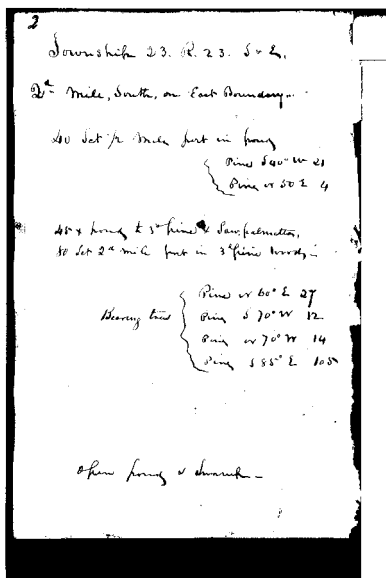 2
Township 23. R. 23. S & E.
2d Mile, South, on East Boundary.
40 Set 1/2 Mile post in pond
Pine S 40° W 21
Pine N 50 E 4
45 x pond & 3d pine & Saw palmetto,
80 Set 2d mile post in 3d pine woods,
Bearing trees
Pine N 60° E 27
Pine S 70° W 12
Pine N 70° W 14
Pine S 85° E 105
Open pond & Swamp